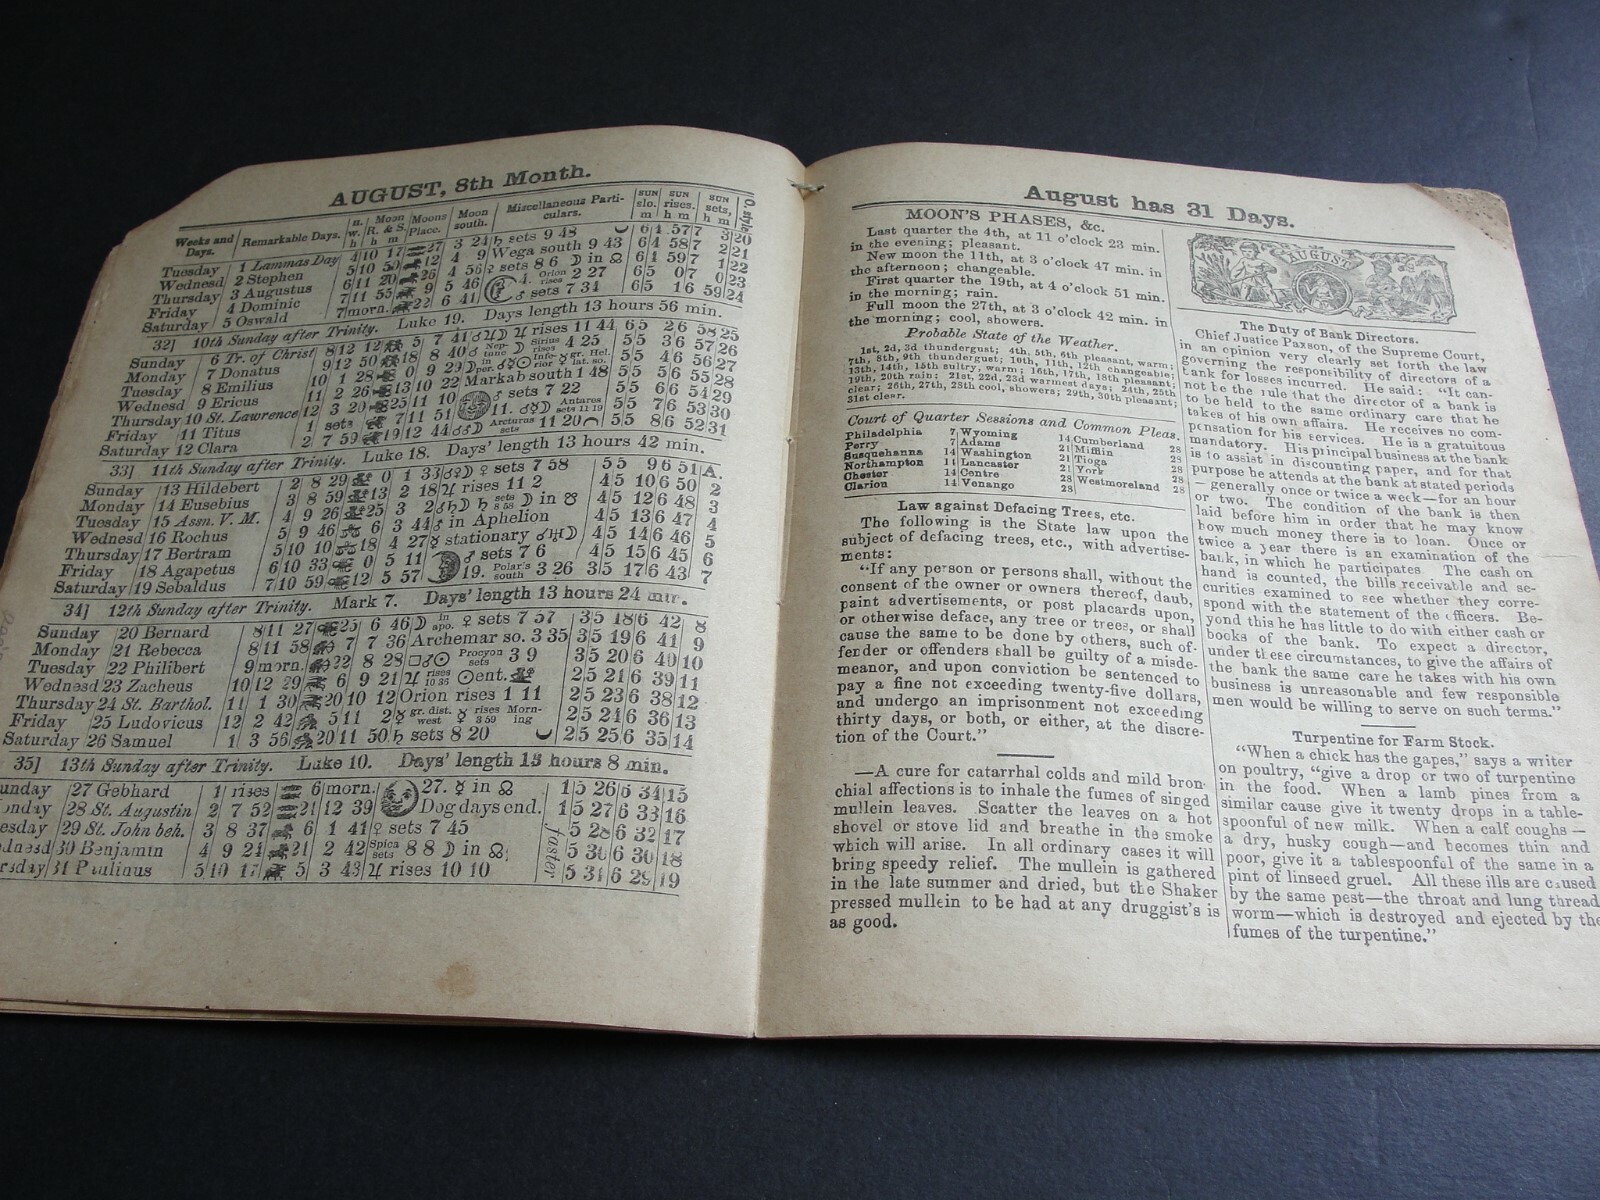 AUGUST, 8th Month.
Weeks and Days. Remarkable Days. Moon R. & S. h m Moons Place. Moon south. Miscellaneous Particulars. SUN slo. m SUN rises. h m SUN sets, h m
Tuesday 1 Lammas Day 4 10 17 27 3 24 ♄ sets 9 48 6 4 57 7 3 20
Wednesd 2 Stephen 5 10 50 12 4 9 Wega south 9 43 6 4 58 7 2 21
Thursday 3 Augustus 6 11 20 26 4 56 ♀ sets 8 6 ☽ in ☊ 6 4 59 7 1 22
Friday 4 Dominic 7 11 55 9 5 46 4. Orion rises 2 27 6 5 0 7 0 23
Saturday 5 Oswald 7 morn. 22 6 41 ♂ sets 7 34 6 5 1 6 59 24
32] 10th Sunday after Trinity. Luke 19. Days length 13 hours 56 min.
Sunday 6 Tr. of Christ 8 12 12 5 7 41 ♂♆☽ ♃ rises 11 44 6 5 2 6 58 25
Monday 7 Donatus 9 12 50 18 8 40 Sirius rises 4 25 5 5 3 6 57 26
Tuesday 8 Emilius 10 1 28 0 9 29 5 5 4 6 56 27
Wednesd 9 Ericus 11 2 26 13 10 22 Markab south 1 48 5 5 5 6 55 28
Thursday 10 St. Lawrence 12 3 20 25 11 10 ♂ sets 7 22 5 5 6 6 54 29
Friday 11 Titus 1 sets 7 11 51 11. ♂☿☽ Antares sets 11 19 5 5 7 6 53 30
Saturday 12 Clara 2 7 59 19 12 44 Arcturus sets 11 20 5 5 8 6 52 31
33] 11th Sunday after Trinity. Luke 18. Days' length 13 hours 42 min.
Sunday 13 Hildebert 2 8 29 0 1 33 ♂♀☽ ♀ sets 7 58 5 5 9 6 51 A.
Monday 14 Eusebius 3 8 59 13 2 18 ♃ rises 11 2 4 5 10 6 50 2
Tuesday 15 Assn. V. M. 4 9 26 25 3 2 ♂♄☽ ♄ sets 8 58 ☽ in ☋ 4 5 12 6 48 3
Wednesd 16 Rochus 5 9 46 6 3 44 ♂ in Aphelion 4 5 13 6 47 4
Thursday 17 Bertram 5 10 10 18 4 27 ☿ stationary ♂♅☽ 4 5 14 6 46 5
Friday 18 Agapetus 6 10 33 0 5 11 ♂ sets 7 6 4 5 15 6 45 6
Saturday 19 Sebaldus 7 10 59 12 5 57 19. Polar's south 3 26 3 5 17 6 43 7
34] 12th Sunday after Trinity. Mark 7. Days' length 13 hours 24 min.
Sunday 20 Bernard 8 11 27 25 6 46 ☽ in apo. ♀ sets 7 57 3 5 18 6 42 8
Monday 21 Rebecca 8 11 58 7 7 36 Archemar so. 3 35 3 5 19 6 41 9
Tuesday 22 Philibert 9 morn. 22 8 28 □♂☉ Procyon sets 3 9 3 5 20 6 40 10
Wednesd 23 Zacheus 10 12 29 6 9 21 ♃ rises 10 36 ☉ ent. 2 5 21 6 39 11
Thursday 24 St. Barthol. 11 1 30 20 10 12 Orion rises 1 11 2 5 23 6 38 12
Friday 25 Ludovicus 12 2 42 5 11 2 ☿ gr. dist. west ☿ rises 3 59 Morning 2 5 24 6 36 13
Saturday 26 Samuel 1 3 56 20 11 50 ♄ sets 8 20 2 5 25 6 35 14
35] 13th Sunday after Trinity. Luke 10. Days' length 13 hours 8 min.
unday 27 Gebhard 1 rises 6 morn. 27. ☿ in ☊ 1 5 26 6 34 15
nday 28 St. Augustin 2 7 52 21 12 39 Dog days end. 1 5 27 6 33 16
esday 29 St. John beh. 3 8 37 6 1 41 ♀ sets 7 45 5 28 6 32 17
dnesd 30 Benjamin 4 9 24 21 2 42 Spica sets 8 8 ☽ in ☊ faster 5 30 6 30 18
rsday 31 Paulinus 5 10 17 5 3 43 ♃ rises 10 10 5 31 6 29 19
August has 31 Days.
MOON'S PHASES, &c.
Last quarter the 4th, at 11 o'clock 23 min.
in the evening; pleasant.
New moon the 11th, at 3 o'clock 47 min. in
the afternoon; changeable.
First quarter the 19th, at 4 o'clock 51 min.
in the morning; rain.
Full moon the 27th, at 3 o'clock 42 min. in
the morning; cool, showers.
Probable State of the Weather.
1st, 2d, 3d thundergust; 4th, 5th, 6th pleasant, warm;
7th, 8th, 9th thundergust; 10th, 11th, 12th changeable;
13th, 14th, 15th sultry, warm; 16th, 17th, 18th pleasant;
19th, 20th rain; 21st, 22d, 23d warmest days; 24th, 25th
clear; 26th, 27th, 28th cool, showers; 29th, 30th pleasant;
31st clear.
Court of Quarter Sessions and Common Pleas.
Philadelphia 7 Wyoming 14 Cumberland 28
Perry 7 Adams 21 Mifflin 28
Susquehanna 14 Washington 21 Tioga 28
Northampton 14 Lancaster 21 York 28
Chester 14 Centre 28 Westmoreland 28
Clarion 14 Venango 28
Law against Defacing Trees, etc.
The following is the State law upon the
subject of defacing trees, etc., with advertise-
ments:
"If any person or persons shall, without the
consent of the owner or owners thereof, daub,
paint advertisements, or post placards upon,
or otherwise deface, any tree or trees, or shall
cause the same to be done by others, such of-
fender or offenders shall be guilty of a misde-
meanor, and upon conviction be sentenced to
pay a fine not exceeding twenty-five dollars,
and undergo an imprisonment not exceeding
thirty days, or both, or either, at the discre-
tion of the Court."
—A cure for catarrhal colds and mild bron-
chial affections is to inhale the fumes of singed
mullein leaves. Scatter the leaves on a hot
shovel or stove lid and breathe in the smoke
which will arise. In all ordinary cases it will
bring speedy relief. The mullein is gathered
in the late summer and dried, but the Shaker
pressed mullein to be had at any druggist's is
as good.
AUGUST
The Duty of Bank Directors.
Chief Justice Paxson, of the Supreme Court,
in an opinion very clearly set forth the law
governing the responsibility of directors of a
bank for losses incurred. He said: "It can-
not be the rule that the director of a bank is
to be held to the same ordinary care that he
takes of his own affairs. He receives no com-
pensation for his services. He is a gratuitous
mandatory. His principal business at the bank
is to assist in discounting paper, and for that
purpose he attends at the bank at stated periods
—generally once or twice a week—for an hour
or two. The condition of the bank is then
laid before him in order that he may know
how much money there is to loan. Once or
twice a year there is an examination of the
bank, in which he participates. The cash on
hand is counted, the bills receivable and se-
curities examined to see whether they corre-
spond with the statement of the officers. Be-
yond this he has little to do with either cash or
books of the bank. To expect a director,
under these circumstances, to give the affairs of
the bank the same care he takes with his own
business is unreasonable and few responsible
men would be willing to serve on such terms."
Turpentine for Farm Stock.
"When a chick has the gapes," says a writer
on poultry, "give a drop or two of turpentine
in the food. When a lamb pines from a
similar cause give it twenty drops in a table-
spoonful of new milk. When a calf coughs—
a dry, husky cough—and becomes thin and
poor, give it a tablespoonful of the same in a
pint of linseed gruel. All these ills are caused
by the same pest—the throat and lung thread
worm—which is destroyed and ejected by the
fumes of the turpentine."